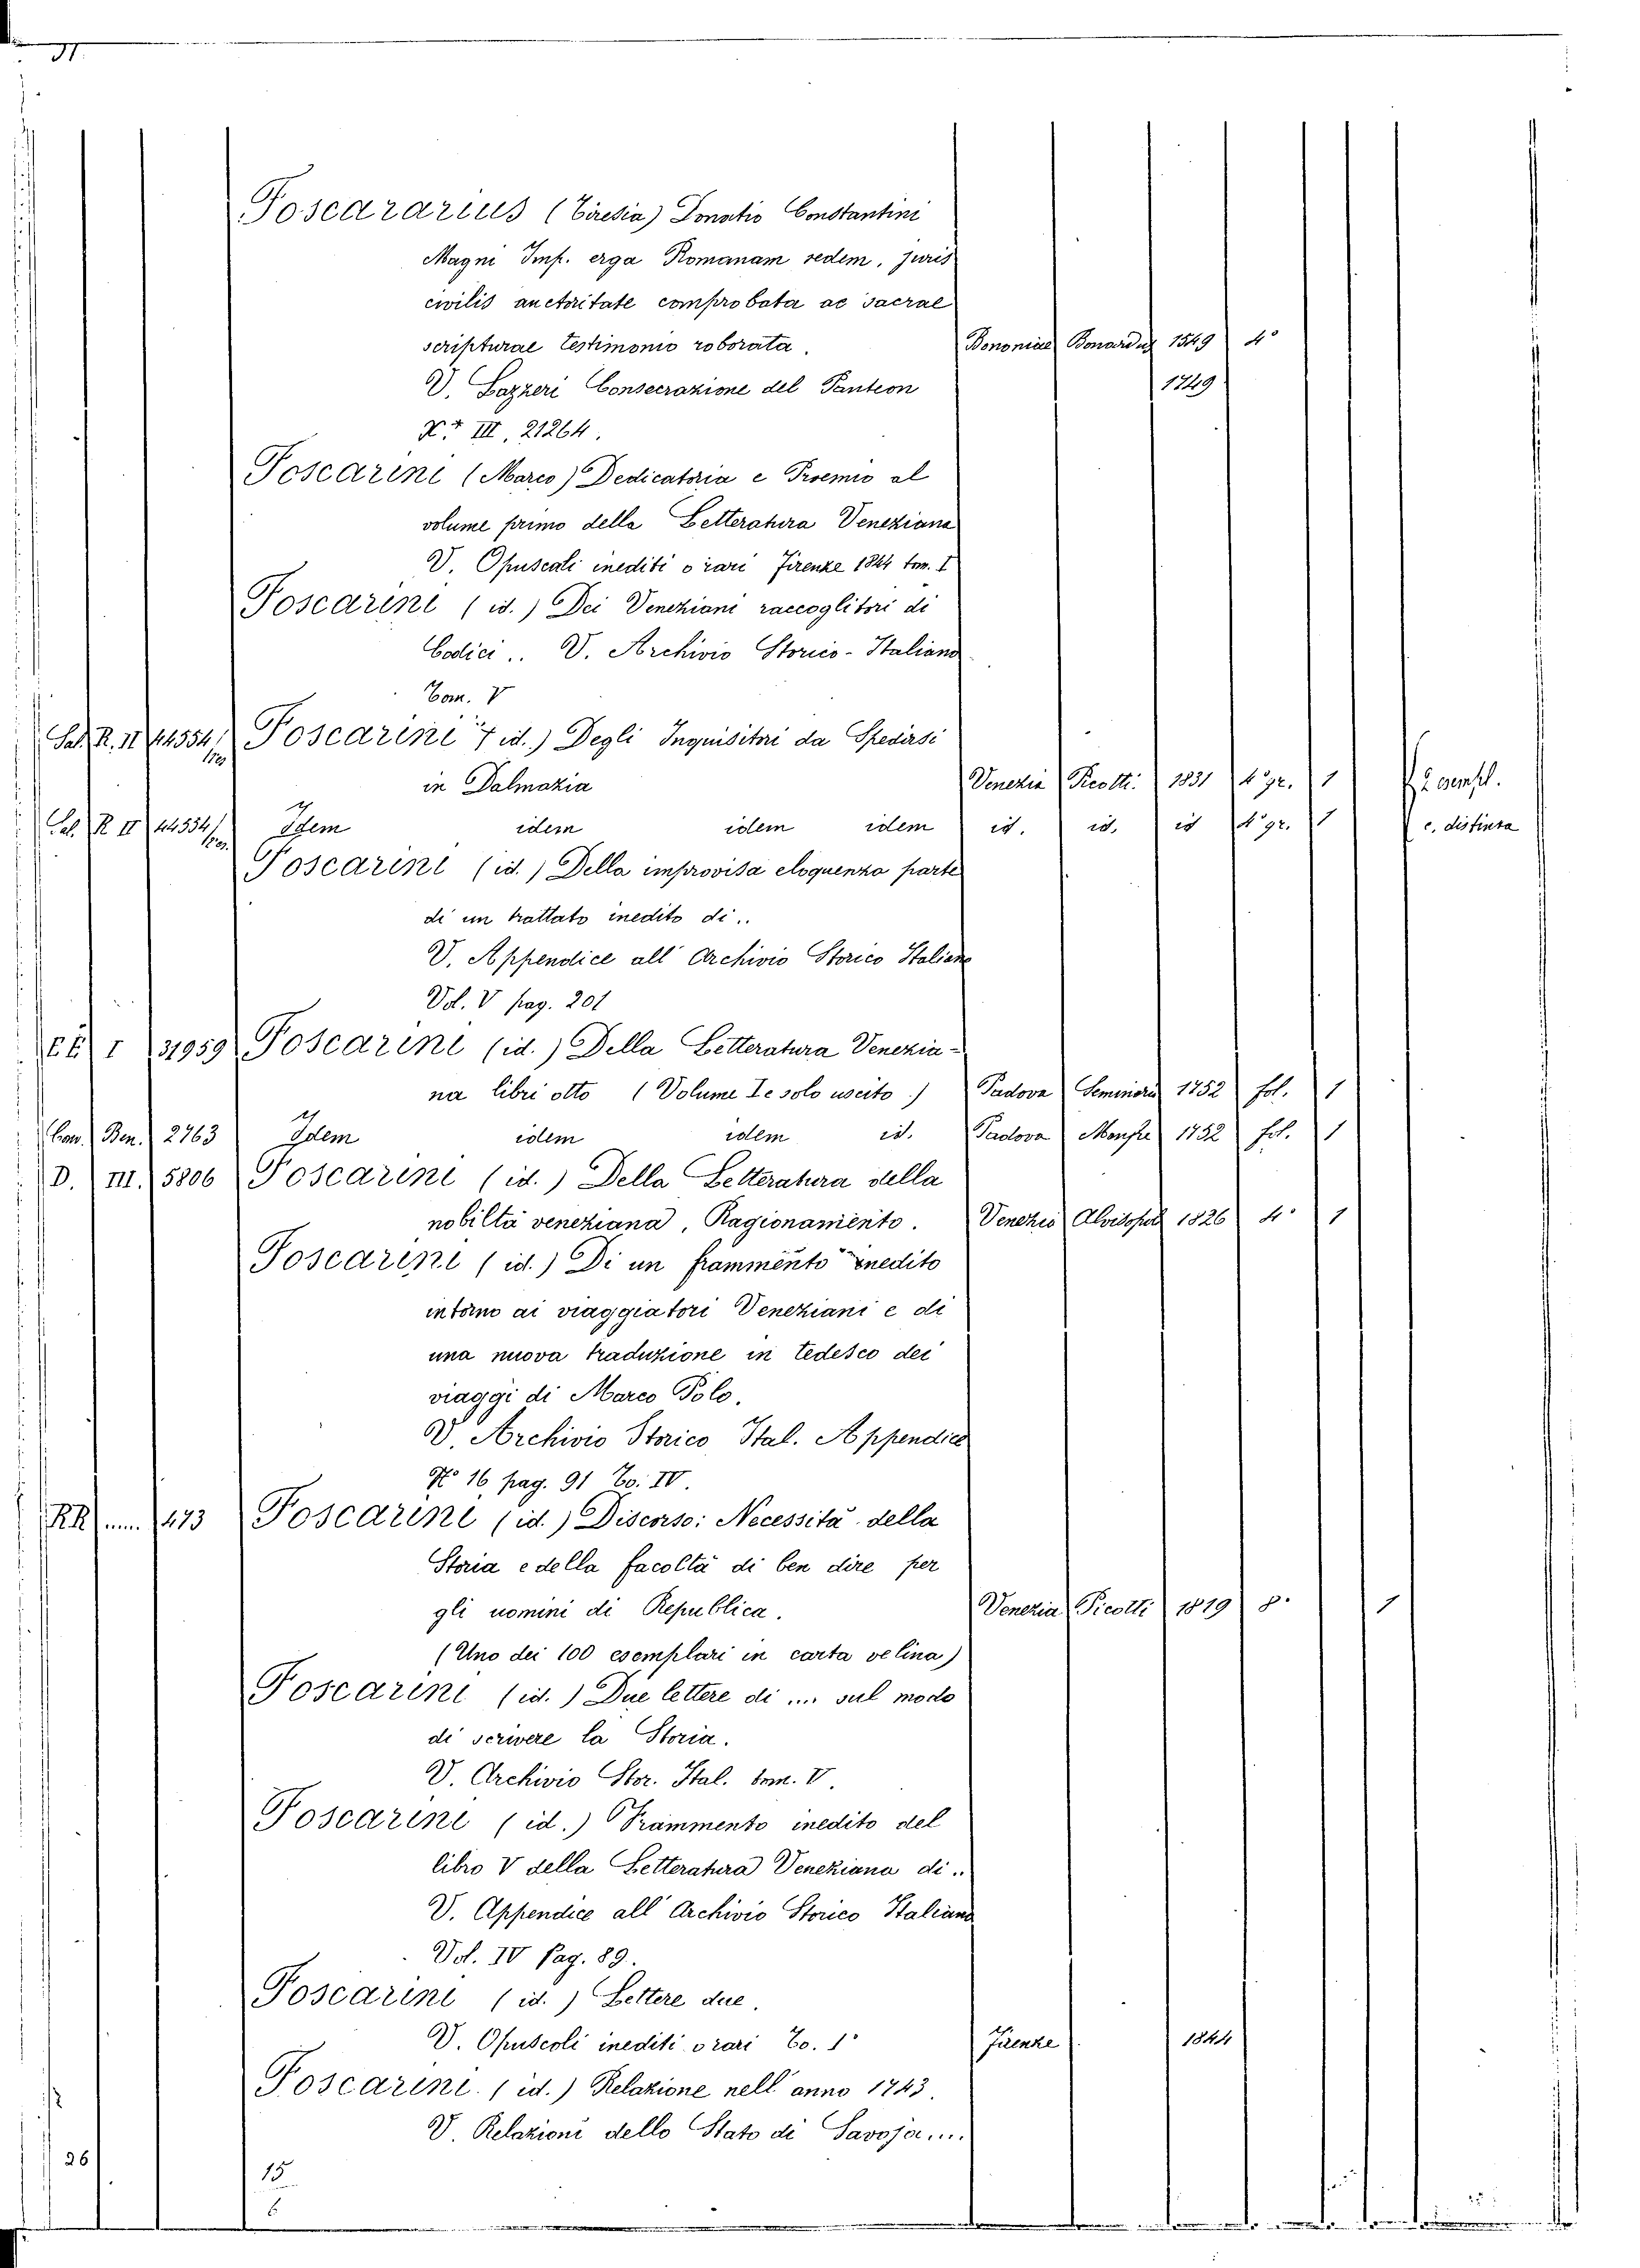 Foscararius (Tiresia) Donatio Constantini
Magni Imp. erga Romanam sedem, juris
civilis auctoritate comprobata ac sacrae
scripturae testimonio roborata. Bononiae Bonardus 1549 4°
V. Lazzeri Consecrazione del Panteon 1749
III, 21264.
Foscarini (Marco) Dedicatoria e Proemio al
volume primo della Letteratura Veneziana
V. Opuscoli inediti o rari Firenze 1844 tom. I
Foscarini (id.) Dei Veneziani raccoglitori di
Codici .. V. Archivio Storico-Italiano
Tom. V
Sal. R. II 44554/ Foscarini (id.) Degli Inquisitori da Spedirsi
in Dalmazia Venezia Picotti. 1831 4° gr. 1
Sal. R II 44554/ Idem idem idem idem id. id. id 4° gr. 1 c. distinta
Foscarini (id.) Della improvisa eloquenza parte
di un trattato inedito di..
V. Appendice all' Archivio Storico Italiano
Vol. V pag. 201
EE I 31959 Foscarini (id.) Della Letteratura Venezia-
na libri otto (Volume Io solo uscito.) Padova Seminario 1752 fol. 1
Con. Ben. 2763 Idem idem idem id. Padova Manfrè 1752 fol. 1
D. III. 5806 Foscarini (id.) Della Letteratura della
nobiltà veneziana, Ragionamento. Venezia Alvisopoli 1826 4° 1
Foscarini (id.) Di un frammento inedito
intorno ai viaggiatori Veneziani e di
una nuova traduzione in tedesco dei
viaggi di Marco Polo.
V. Archivio Storico Ital. Appendice
N° 16 pag. 91 To. IV.
RR .... 473 Foscarini (id.) Discorso: Necessità della
Storia e della facoltà di ben dire per
gli uomini di Republica. Venezia Picotti 1819 8° 1
(Uno dei 100 esemplari in carta velina)
Foscarini (id.) Due lettere di .... sul modo
di scrivere la Storia.
V. Archivio Stor. Ital. tom. V.
Foscarini (id.) Frammento inedito del
libro V della Letteratura Veneziana di..
V. Appendice all' Archivio Storico Italiano
Vol. IV Pag. 89.
Foscarini (id.) Lettere due.
V. Opuscoli inediti o rari To. 1° Firenze 1844
Foscarini. (id.) Relazione nell' anno 1743.
V. Relazioni dello Stato di Savoja....
26
15
6